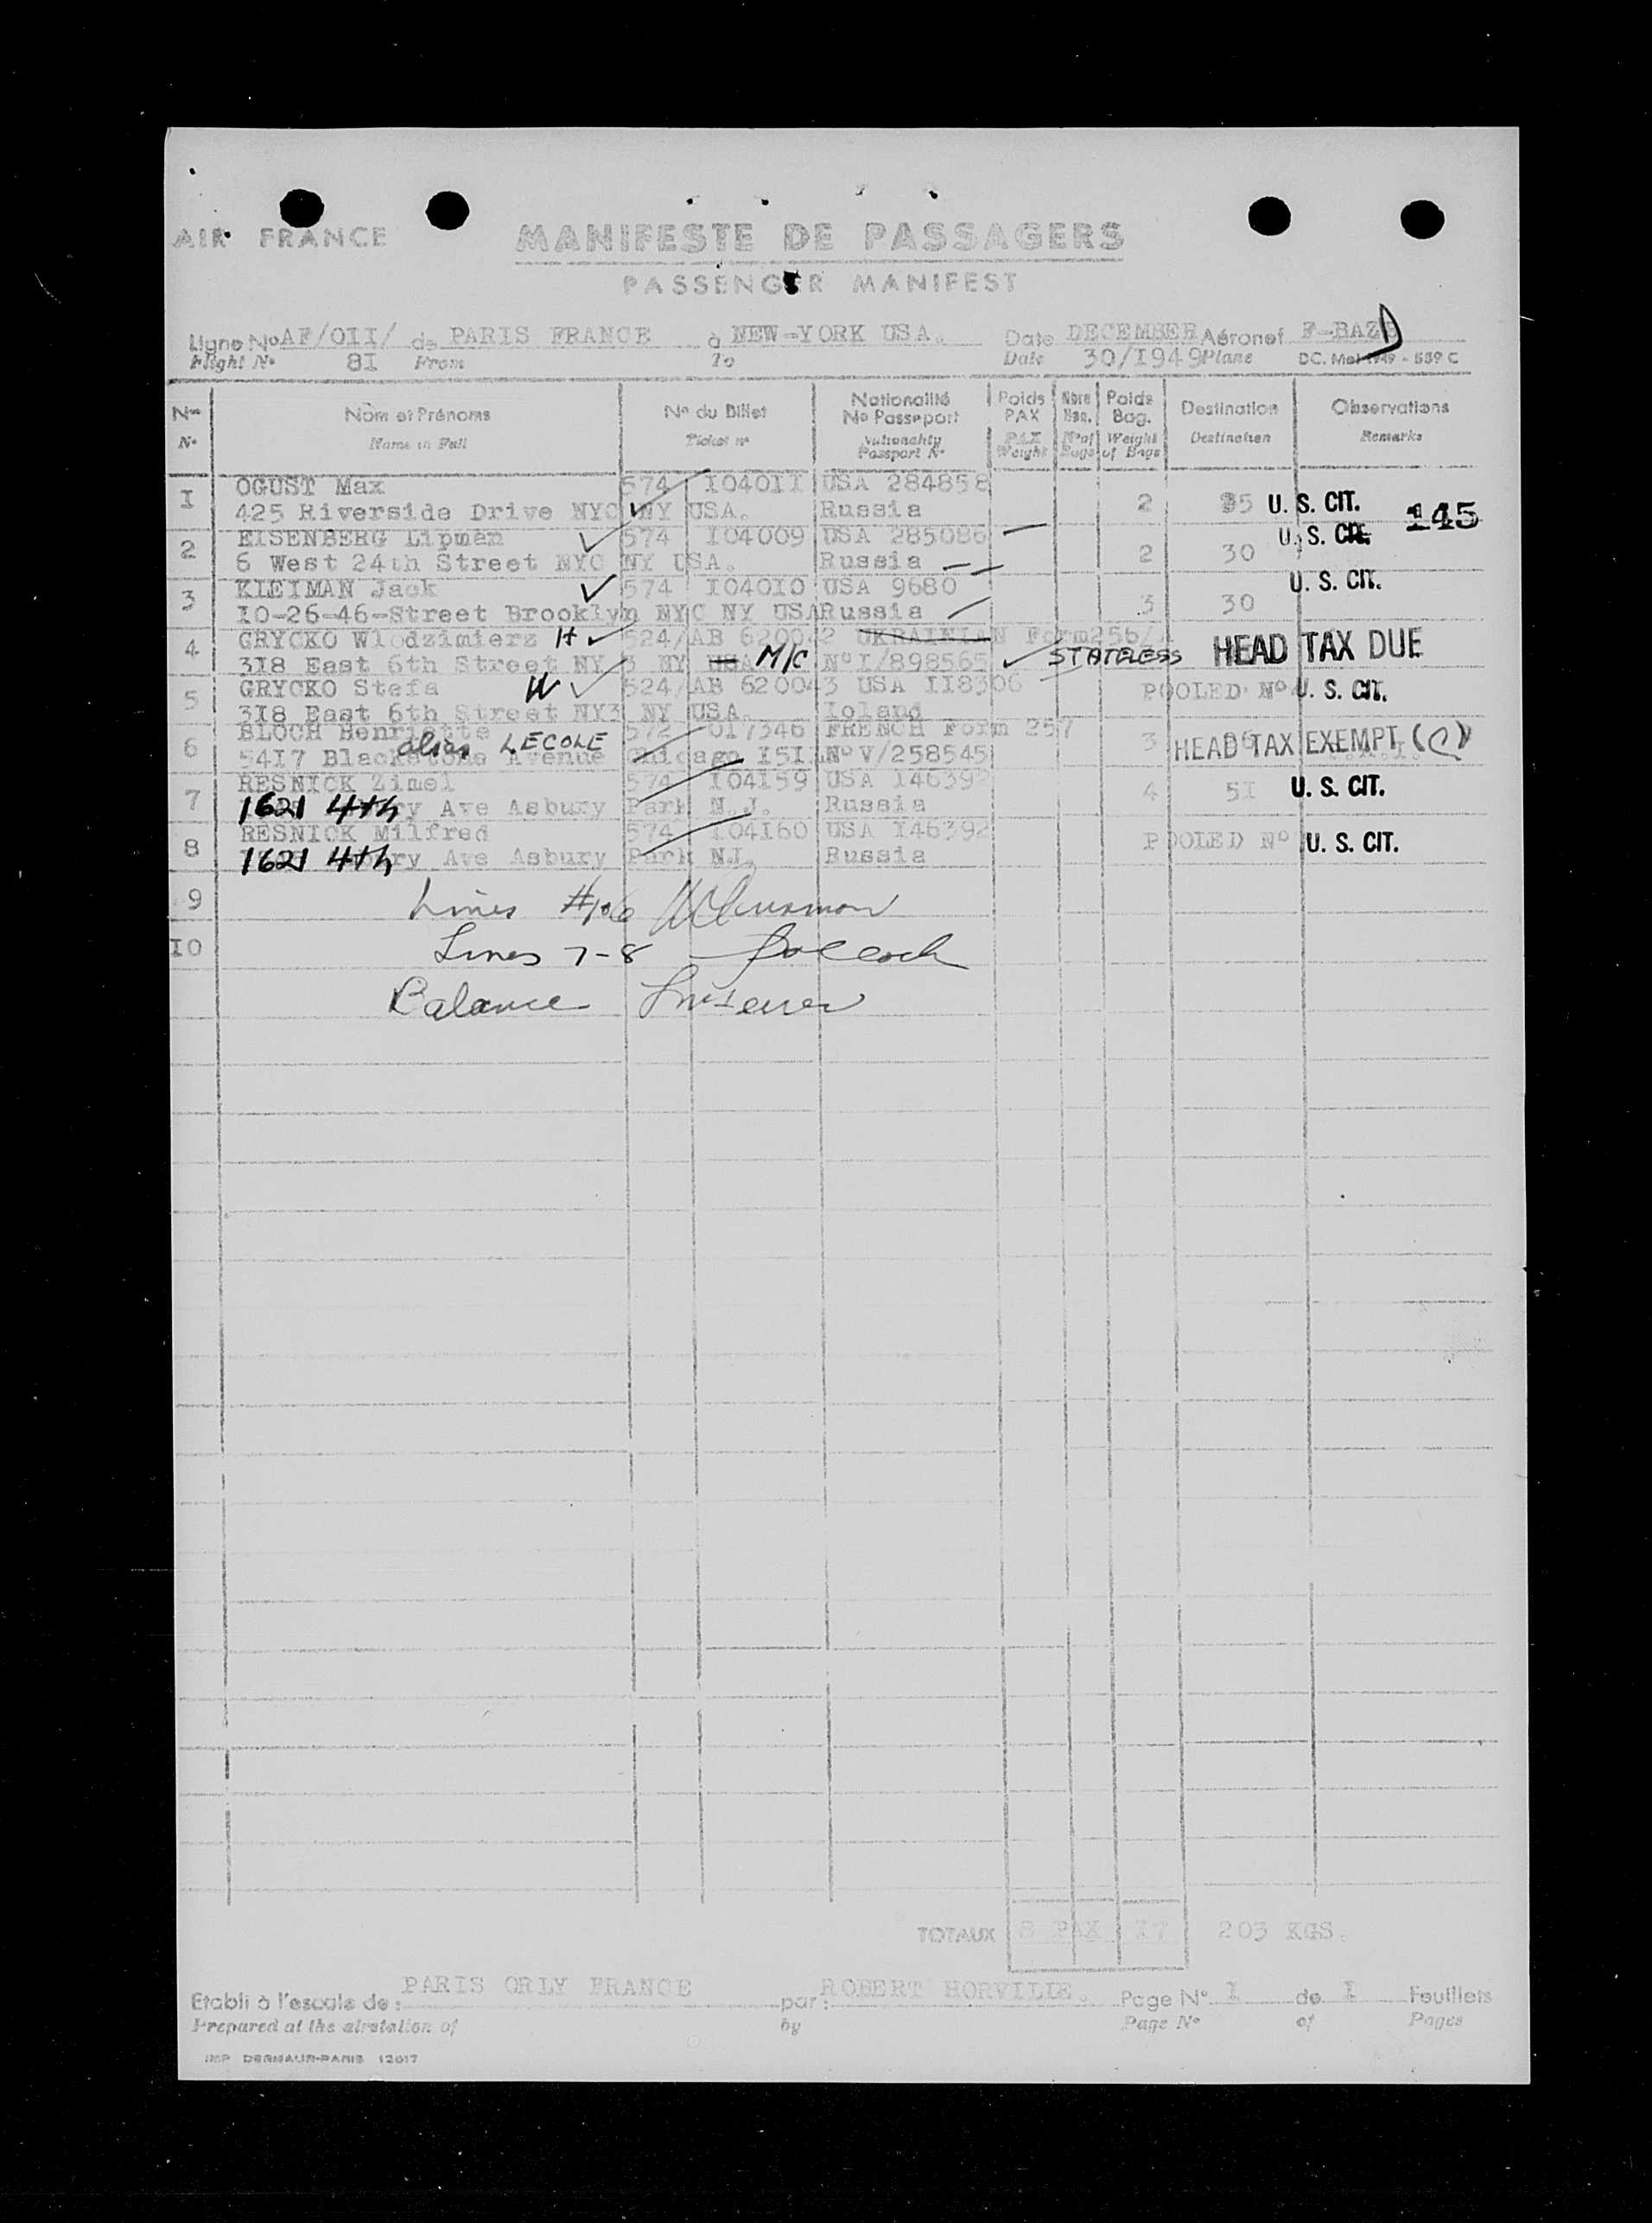 AIR FRANCE
MANIFESTE DE PASSAGERS
PASSENGER MANIFEST
Ligne No AF/OII/ de PARIS FRANCE à NEW-YORK USA. Date DECEMBER Aéronef F-BAZ
Flight No 8I From To Date 30/I949 Plane DC. Mel 1949 - 539 C
Nos Nom et Prénoms No du Billet Nationalité No Passeport Poids PAX Nbre Bag. Poids Bag. Destination Observations
No Name in Full Ticket no Nationality Passport No PAX Weight No of Bags Weight of Bags Destination Remarks
I OGUST Max 574 I04OII USA 284858
425 Riverside Drive NYC NY USA. Russia 2 35 U. S. CIT. 145
2 EISENBERG Lipman 574 I04009 USA 285086 U. S. CIT.
6 West 24th Street NYC NY USA. Russia 2 30
3 KLEIMAN Jack 574 I040I0 USA 9680 U. S. CIT.
I0-26-46-Street Brooklyn NYC NY USA Russia 3 30
4 GRYCKO Wlodzimierz H 524/AB 620042 UKRAINIAN Form256/
3I8 East 6th Street NY 3 NY USA M/C No I/898565 STATELESS HEAD TAX DUE
5 GRYCKO Stefa W 524/AB 620043 USA II8306 POOLED No U. S. CIT.
3I8 East 6th Street NY3 NY USA. Ioland
6 BLOCH Henriette 572 0I7346 FRENCH Form 257
alias LECOLE
54I7 Blackstone Avenue Chicago I5I. No V/258545 3 HEAD TAX EXEMPT (C)
7 RESNICK Zimel 574 I04I59 USA I46392 4 5I U. S. CIT.
1621 4th Ave Asbury Park N.J. Russia
8 RESNICK Milfred 574 I04I60 USA I46392 POOLED No U. S. CIT.
1621 4th Ave Asbury Park NJ. Russia
9 Lines
I0 Lines 7-8
Balance
TOTAUX 8 PAX I7 203 KGS.
Etabli à l'escale de : PARIS ORLY FRANCE par : ROBERT HORVILIE. Page No I de I Feuillets
Prepared at the airstation of by Page No of Pages
IMP DERMAUR-PARIS 12017